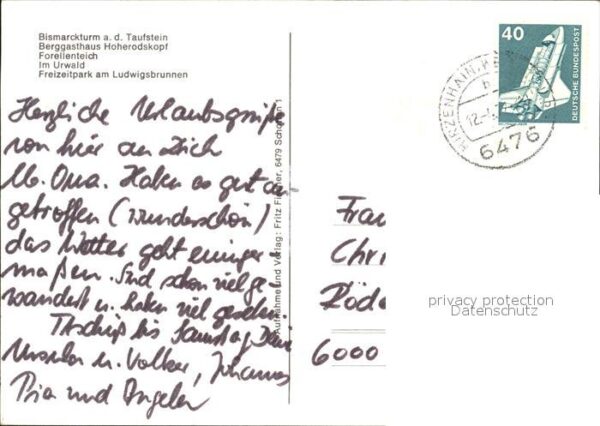 Bismarckturm a. d. Taufstein
Berggasthaus Hoherodskopf
Forellenteich
Im Urwald
Freizeitpark am Ludwigsbrunnen
Herzliche Urlaubsgrüße
von hier an Dich
lb. Oma. Haben es gut an-
getroffen (wunderschön)
das Wetter geht einiger-
maßen. Sind schon viel ge-
wandert u. haben viel gesehen.
Tschüß bis Samstag Deine
Ursula u. Volker, Johannes
Pia und Angela
Aufnahme und Verlag: Fritz 6479 1
40
DEUTSCHE BUNDESPOST
HIRZENHAIN
b
12.
6476
Frau
Chri
Röde
6000
privacy protection
Datenschutz